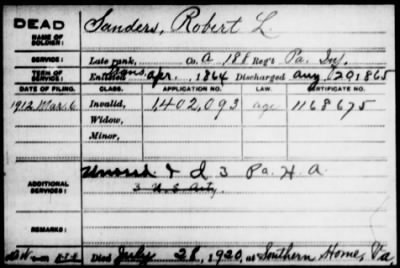 DEAD
NAME OF SOLDIER:
Sanders, Robert L.
SERVICE:
Late rank, Co. A 188 Reg't Pa. Inf.
TERM OF SERVICE:
Enlisted Apr. 1864 Discharged Aug 20, 1865
DATE OF FILING. CLASS. APPLICATION NO. LAW. CERTIFICATE NO.
1912 Mar. 6 Invalid, 1,402,093 age 1168675
Widow,
Minor,
ADDITIONAL SERVICES:
& D 3 Pa. H. A.
3 U S Arty.
REMARKS:
Died July 28, 1920, at Southern Home, Va.